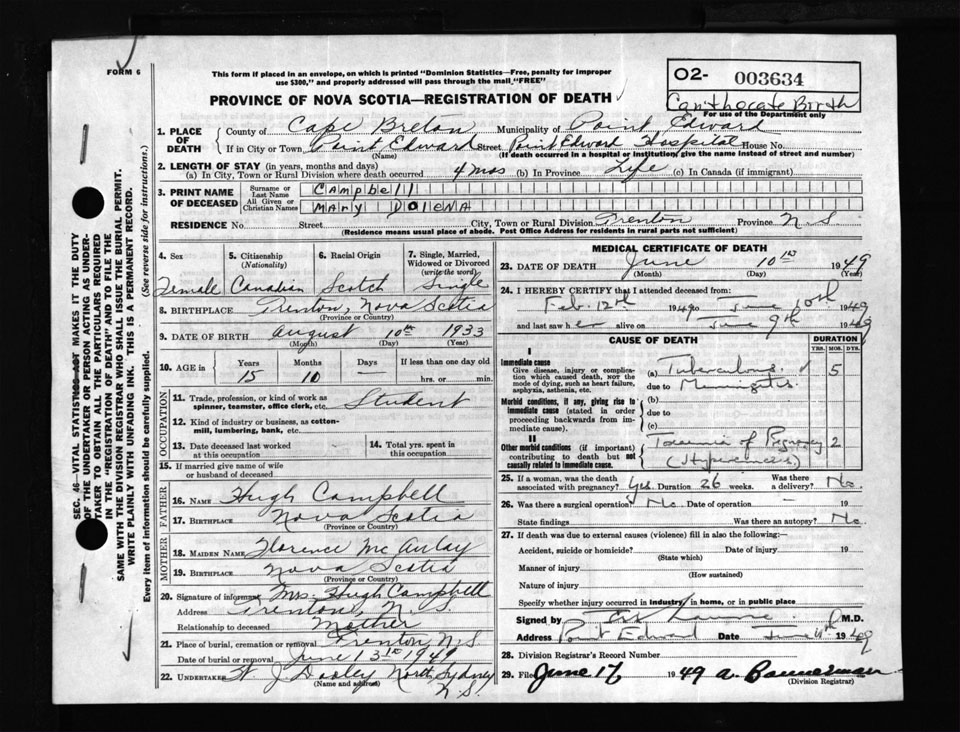 FORM 6
This form if placed in an envelope, on which is printed "Dominion Statistics—Free, penalty for improper
use $300," and properly addressed will pass through the mail "FREE"
PROVINCE OF NOVA SCOTIA—REGISTRATION OF DEATH
O2- 003634
Birth
For use of the Department only
1. PLACE OF DEATH County of Cape Breton Municipality of Point Edward
If in City or Town Point Edward Street Point Edward Hospital House No.
(Name) (If death occurred in a hospital or institution, give the name instead of street and number)
2. LENGTH OF STAY (in years, months and days)
(a) In City, Town or Rural Division where death occurred 4 mos (b) In Province Life (c) In Canada (if immigrant)
3. PRINT NAME OF DECEASED Surname or Last Name Campbell
All Given or Christian Names MARY DOLENA
RESIDENCE No. Street City, Town or Rural Division Trenton Province N.S
(Residence means usual place of abode. Post Office Address for residents in rural parts not sufficient)
4. Sex Female
5. Citizenship (Nationality) Canadian
6. Racial Origin Scotch
7. Single, Married, Widowed or Divorced (write the word) Single
8. BIRTHPLACE Trenton, Nova Scotia
(Province or Country)
9. DATE OF BIRTH August 10th 1933
(Month) (Day) (Year)
10. AGE in Years 15 Months 10 Days — If less than one day old
hrs. or min.
OCCUPATION
11. Trade, profession, or kind of work as spinner, teamster, office clerk, etc. Student
12. Kind of industry or business, as cotton-mill, lumbering, bank, etc.
13. Date deceased last worked at this occupation
14. Total yrs. spent in this occupation
15. If married give name of wife or husband of deceased
FATHER
16. NAME Hugh Campbell
17. BIRTHPLACE Nova Scotia
(Province or Country)
MOTHER
18. MAIDEN NAME Florence McAulay
19. BIRTHPLACE Nova Scotia
(Province or Country)
20. Signature of informant Mrs. Hugh Campbell
Address Trenton, N.S.
Relationship to deceased Mother
21. Place of burial, cremation or removal Trenton, N.S.
Date of burial or removal June 13th 1949
22. UNDERTAKER J Dooley North Sydney
(Name and address) N.S.
MEDICAL CERTIFICATE OF DEATH
23. DATE OF DEATH June 10th 1949
(Month) (Day) (Year)
24. I HEREBY CERTIFY that I attended deceased from:
Feb. 12th 1949 to June 10th 1949
and last saw her alive on June 9th 1949
CAUSE OF DEATH DURATION
YRS. MOS. DYS.
I
Immediate cause
Give disease, injury or complication which caused death, NOT the mode of dying, such as heart failure, asphyxia, asthenia, etc.
(a) Tuberculous 5
due to Meningitis
Morbid conditions, if any, giving rise to immediate cause (stated in order proceeding backwards from immediate cause).
(b)
due to
(c)
II
Other morbid conditions (if important) contributing to death but not causally related to immediate cause.
Toxemia of Pregnancy 2
25. If a woman, was the death associated with pregnancy? Yes. Duration 26 weeks. Was there a delivery? No.
26. Was there a surgical operation? No. Date of operation — 19
State findings Was there an autopsy? No.
27. If death was due to external causes (violence) fill in also the following:—
Accident, suicide or homicide? Date of injury 19
(State which)
Manner of injury
(How sustained)
Nature of injury
Specify whether injury occurred in industry, in home, or in public place
Signed by M.D.
Address Point Edward Date June 1949
28. Division Registrar's Record Number
29. Filed June 17 1949 A. Bannerman
(Division Registrar)
SEC. 46—VITAL STATISTICS ACT MAKES IT THE DUTY
OF THE UNDERTAKER OR PERSON ACTING AS UNDER-
TAKER TO OBTAIN ALL THE PARTICULARS REQUIRED
IN THE "REGISTRATION OF DEATH" AND TO FILE THE
SAME WITH THE DIVISION REGISTRAR WHO SHALL ISSUE THE BURIAL PERMIT.
WRITE PLAINLY WITH UNFADING INK. THIS IS A PERMANENT RECORD.
Every item of information should be carefully supplied. (See reverse side for instructions.)